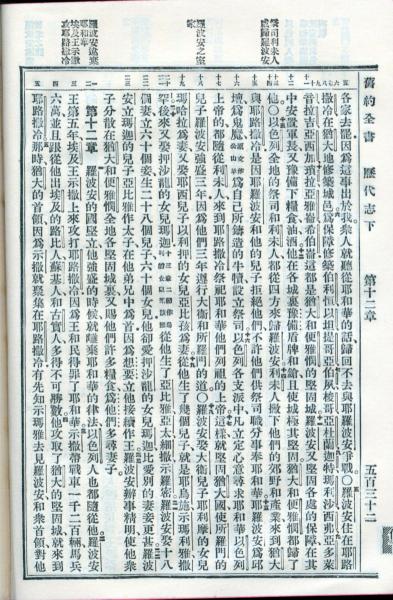 舊約全書 歷代志下 第十二章 五百三十二
祭司利未人
處歸羅波安
羅波安之室
家
羅波安違棄
耶和華
埃及王示撒
攻耶路撒冷
各家去罷因為這事出於我衆人就聽從耶和華的話歸回不去與耶羅波安爭戰○羅波安住在耶路
撒冷在猶大地修築城邑為保障修築伯利恒以坦提哥亞伯夙梭哥亞杜蘭迦特瑪利沙西弗亞多萊
音拉吉亞西加瑣拉亞雅崙希伯崙這都是猶大和便雅憫的堅固城羅波安又堅固各處的保障在其
中安置軍長又豫備下糧食油酒他在各城裏豫備盾牌和鎗且使城極其堅固猶大和便雅憫都歸了
他○以色列全地的祭司和利未人都從四方來歸羅波安利未人撇下他們的郊野和產業來到猶大
與耶路撒冷是因耶羅波安和他的兒子拒絕他們不許他們供祭司職分事奉耶和華耶羅波安為邱
壇為鬼魔為自己所鑄造的牛犢設立祭司以色列各支派中凡立定心意尋求耶和華以色列
上帝的都隨從利未人來到耶路撒冷祭祀耶和華他們列祖的上帝這樣就堅固猶大國使所羅門的
兒子羅波安強盛三年因為他們三年遵行大衛和所羅門的道○羅波安娶大衛兒子耶利摩的女兒
瑪哈拉為妻又娶耶西兒子以利押的女兒亞比孩為妻從他生了幾個兒子就是耶烏施示瑪利雅撒
罕後來又娶押沙龍的女兒瑪迦從他生了亞比雅亞太細撒示羅密羅波安娶十八
個妻立六十個妾生二十八個兒子六十個女兒他卻愛押沙龍的女兒瑪迦比愛別的妻妾更甚羅波
安立瑪迦的兒子亞比雅作太子在他弟兄中為首因為想要立他接續作王羅波安辦事精明使他衆
子分散在猶大和便雅憫全地各堅固城裏又賜他們許多糧食為他們多尋妻子
第十二章 羅波安的國堅立他強盛的時候就離棄耶和華的律法以色列人也都隨從他羅波安
王第五年埃及王示撒上來攻打耶路撒冷因為王和民得罪了耶和華示撒帶戰車一千二百輛馬兵
六萬並且跟從他出埃及的路比人蘇基人和古實人多得不可勝數他攻取了猶大的堅固城就來到
耶路撒冷那時猶大的首領因為示撒就聚集在耶路撒冷有先知示瑪雅去見羅波安和衆首領對他